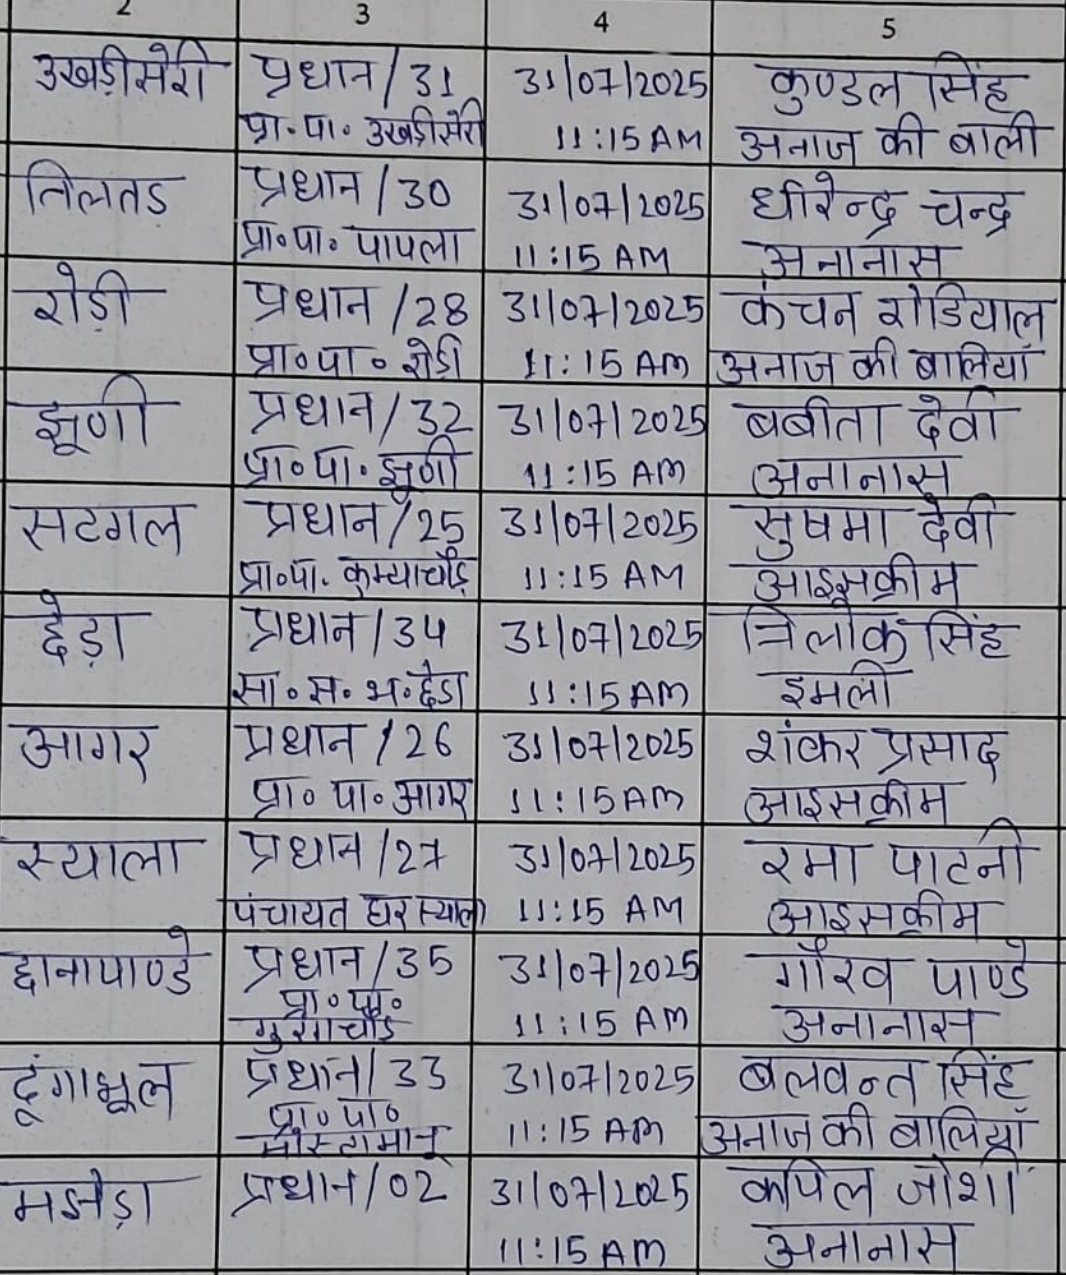 2 3 4 5
उखड़ीसेरी प्रधान/31 31/07/2025 कुण्डल सिंह
प्रा॰पा॰ उखड़ीसेरी 11:15 AM अनाज की बाली
तिलतड प्रधान/30 31/07/2025 धीरेन्द्र चन्द्र
प्रा॰पा॰ पापला 11:15 AM अनानास
रोड़ी प्रधान/28 31/07/2025 कंचन रोडियाल
प्रा॰पा॰ रोड़ी 11:15 AM अनाज की बालियाँ
झूणी प्रधान/32 31/07/2025 बबीता देवी
प्रा॰पा॰ झूणी 11:15 AM अनानास
सटगल प्रधान/25 31/07/2025 सुषमा देवी
प्रा॰पा॰ कुम्याचौड़ 11:15 AM आइसक्रीम
देड़ा प्रधान/34 31/07/2025 त्रिलोक सिंह
सा॰स॰भ॰ देडा 11:15 AM इमली
आगर प्रधान/26 31/07/2025 शंकर प्रसाद
प्रा॰पा॰ आगर 11:15 AM आइसक्रीम
स्याला प्रधान/27 31/07/2025 रमा पाटनी
पंचायत घर स्याला 11:15 AM आइसक्रीम
द्दानापाण्डे प्रधान/35 31/07/2025 गौरव पाण्डे
प्रा॰पा॰
11:15 AM अनानास
दूंगाभूल प्रधान/33 31/07/2025 बलवन्त सिंह
प्रा॰पा॰
11:15 AM अनाज की बालियाँ
मझेड़ा प्रधान/02 31/07/2025 कपिल जोशी
11:15 AM अनानास